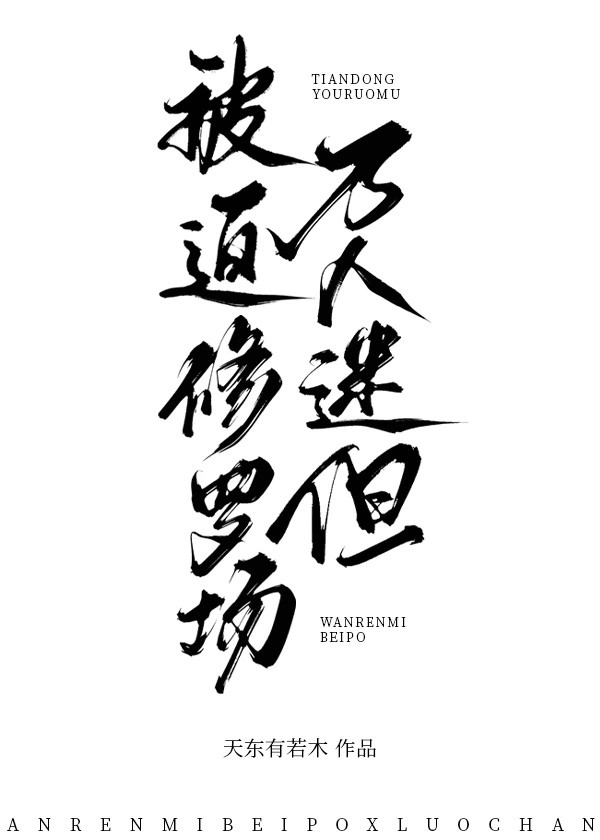 万人迷但
被迫修罗场
TIANDONG
YOURUOMU
WANRENMI
BEIPO
天东有若木 作品
ANRENMIBEIPOXLUOCHAN